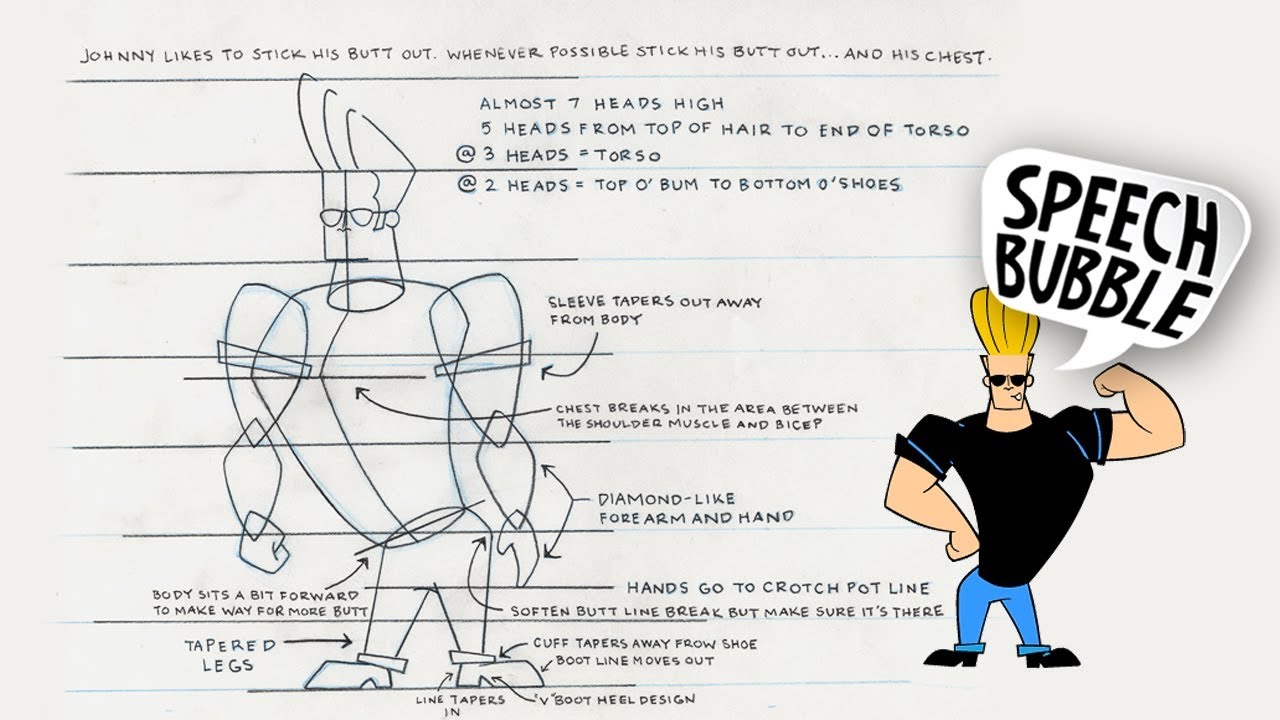 JOHNNY LIKES TO STICK HIS BUTT OUT. WHENEVER POSSIBLE STICK HIS BUTT OUT... AND HIS CHEST.
ALMOST 7 HEADS HIGH
5 HEADS FROM TOP OF HAIR TO END OF TORSO
@ 3 HEADS = TORSO
@ 2 HEADS = TOP O' BUM TO BOTTOM O' SHOES
SPEECH
BUBBLE
SLEEVE TAPERS OUT AWAY
FROM BODY
CHEST BREAKS IN THE AREA BETWEEN
THE SHOULDER MUSCLE AND BICEP
DIAMOND-LIKE
FOREARM AND HAND
HANDS GO TO CROTCH POT LINE
BODY SITS A BIT FORWARD
TO MAKE WAY FOR MORE BUTT
SOFTEN BUTT LINE BREAK BUT MAKE SURE IT'S THERE
TAPERED
LEGS
CUFF TAPERS AWAY FROW SHOE
BOOT LINE MOVES OUT
LINE TAPERS
IN
"V" BOOT HEEL DESIGN